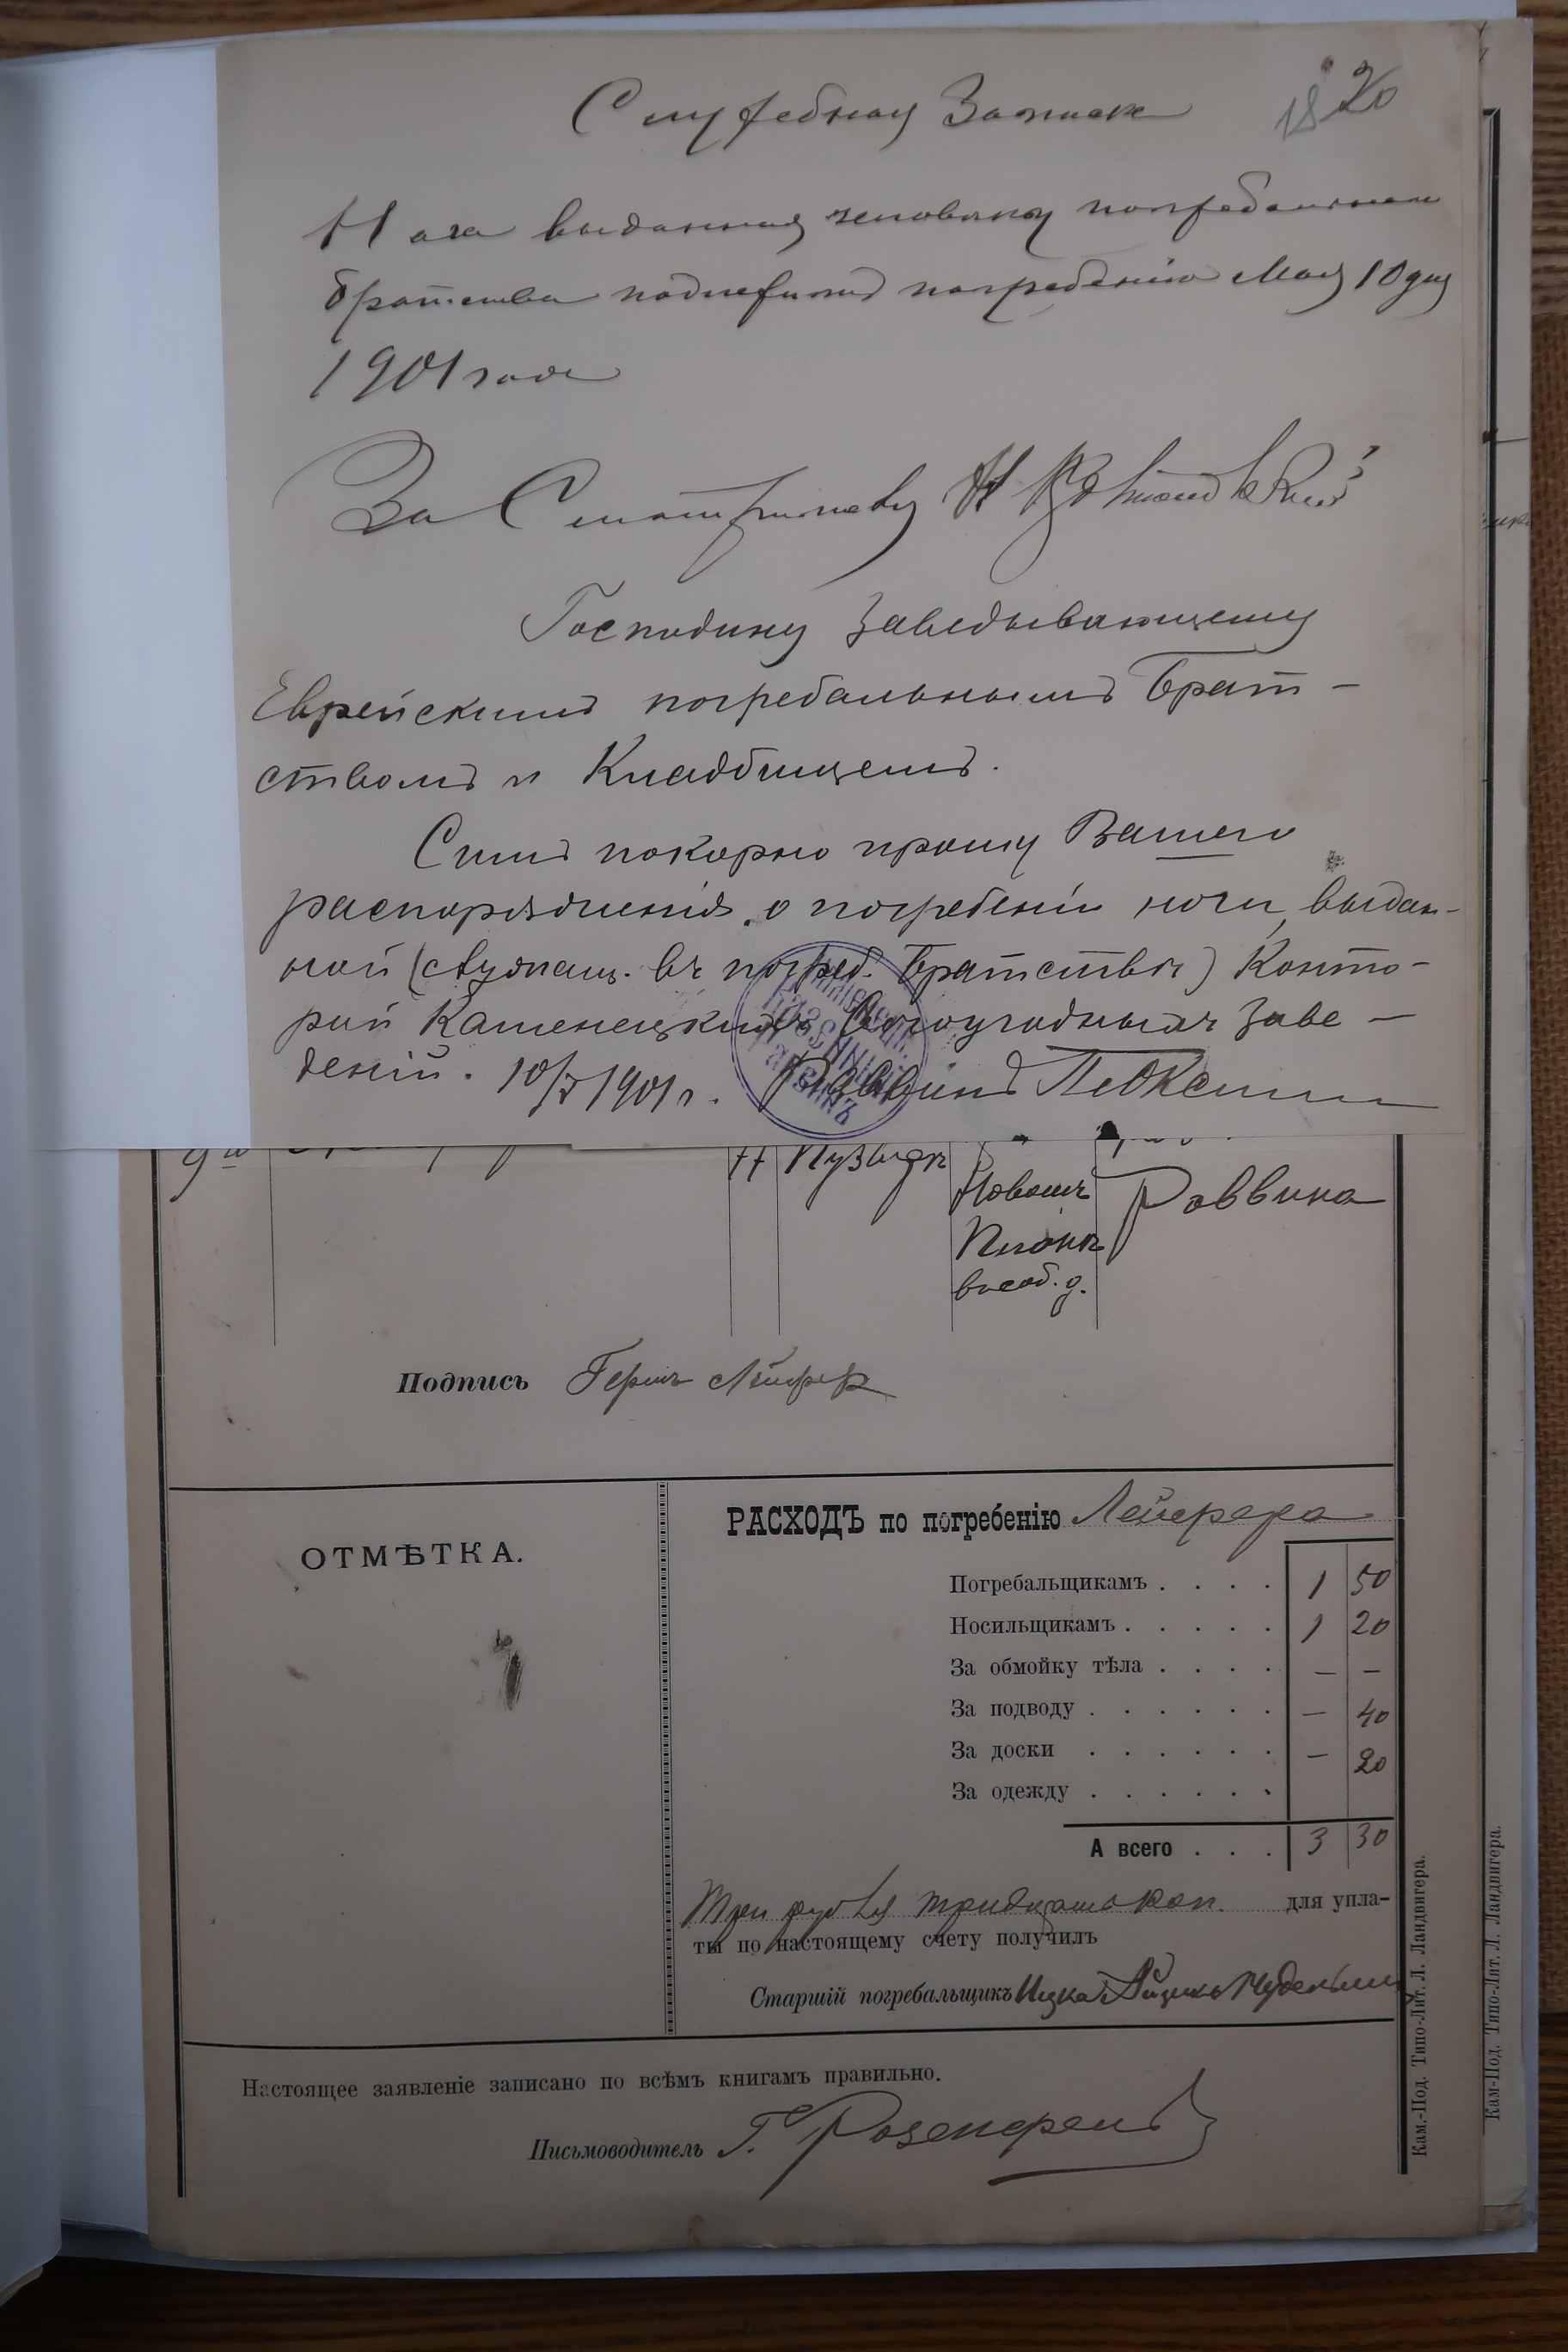 Служебная Записка
18 20
Нога выданная человѣку погребальнаго
братства подлежитъ погребенію Мая 10 дня
1901 года
За Смотрителя Н
Господину Заведывающему
Еврейскимъ погребальнымъ Брат-
ствомъ и Кладбищемъ.
Симъ покорно прошу Вашего
распоряженія о погребеніи ноги, выдан-
ной (служащ. въ погреб. Братствѣ) Конто-
рой Каменецкихъ Богоугодныхъ Заве-
деній. 10/V 1901 г. Раввинъ
9го
Новомъ
Раввина
Планѣ
в соб. д.
Подпись Гершъ Лейфер
ОТМѢТКА.
РАСХОДЪ по погребенію Лейфера
Погребальщикамъ . . . . 1 50
Носильщикамъ . . . . . 1 20
За обмойку тѣла . . . . — —
За подводу . . . . . . — 40
За доски . . . . . . — 20
За одежду . . . . . .
А всего . . . 3 30
Три рубля тридцать коп. для упла-
ты по настоящему счету получилъ
Старшій погребальщикъ Ицко
Настоящее заявленіе записано по всѣмъ книгамъ правильно.
Письмоводитель Г. Розенкренъ
Кам.-Под. Типо-Лит. Л. Ландвигера.
Кам-Под. Типо-Лит. Л. Ландвигера.